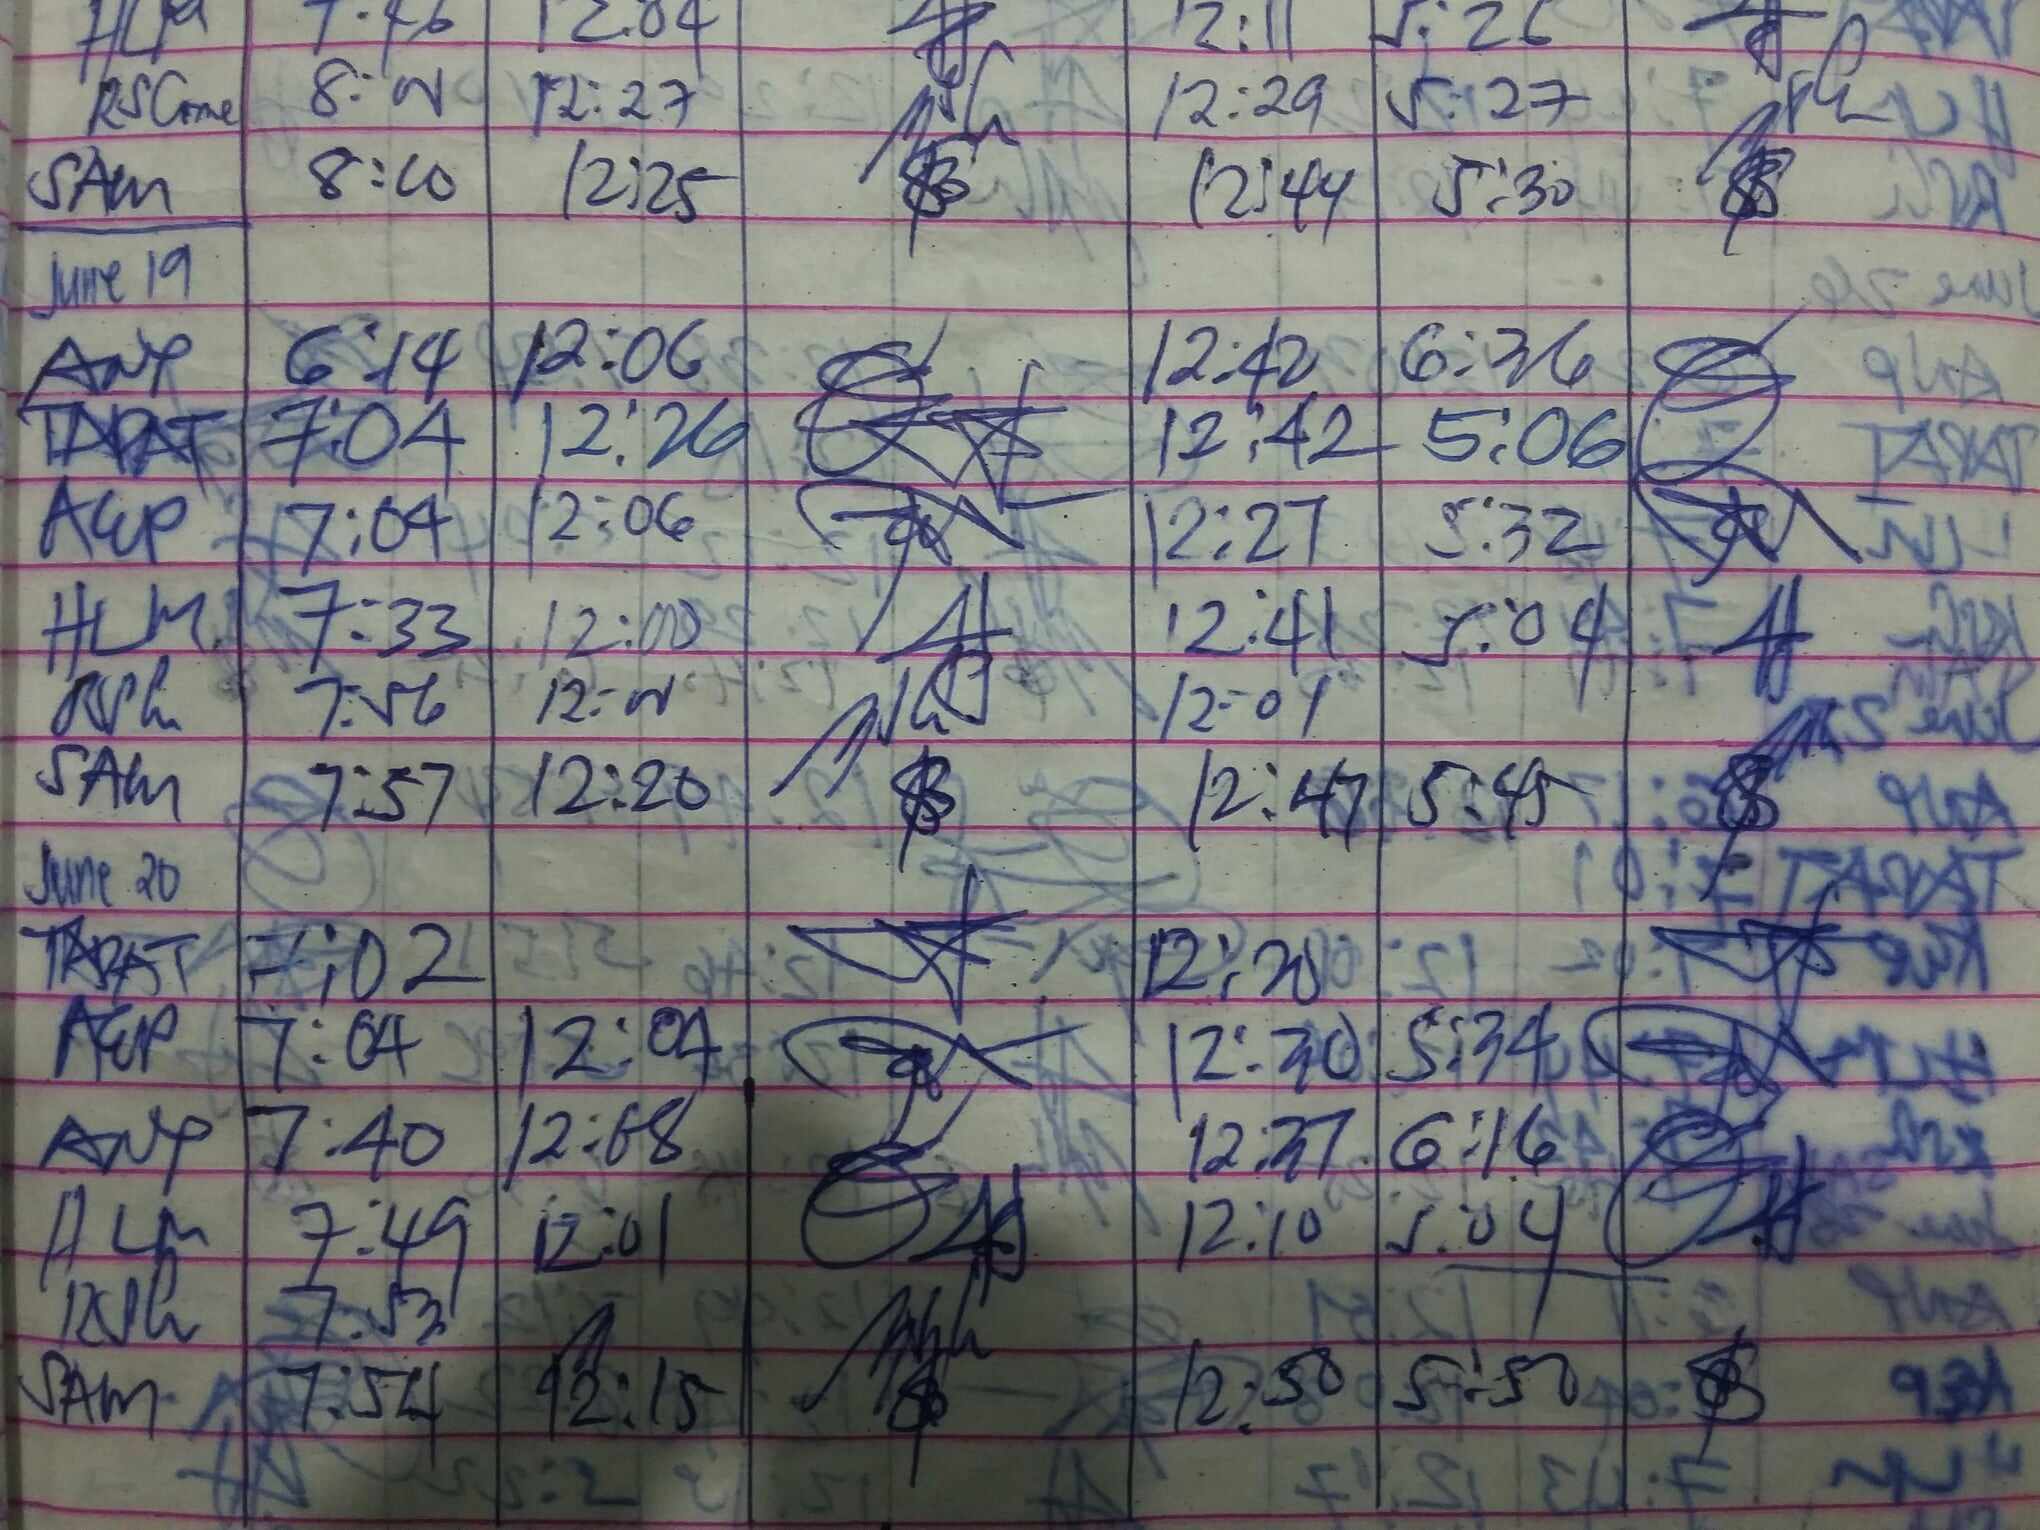 HLM 7:46 12:04 12:11 5:26
8: 12:27 12:29 5:27
SAM 8:10 12:25 12:44 5:30
June 19
ANP 6:14 12:06 12:42 6:36
TAPAT 7:04 12:26 12:42 5:06
AEP 7:04 12:06 12:27 5:32
HLM 7:33 12:00 12:41 5:04
7:56 12: 12:01
SAM 7:57 12:20 12:47 5:45
June 20
TAPAT 7:02 12:30
AEP 7:04 12:04 12:30 5:34
ANP 7:40 12:08 12:37 6:16
HLM 7:49 12:01 12:10 5:04
7:53
SAM 7:54 12:15 12:50 5:50